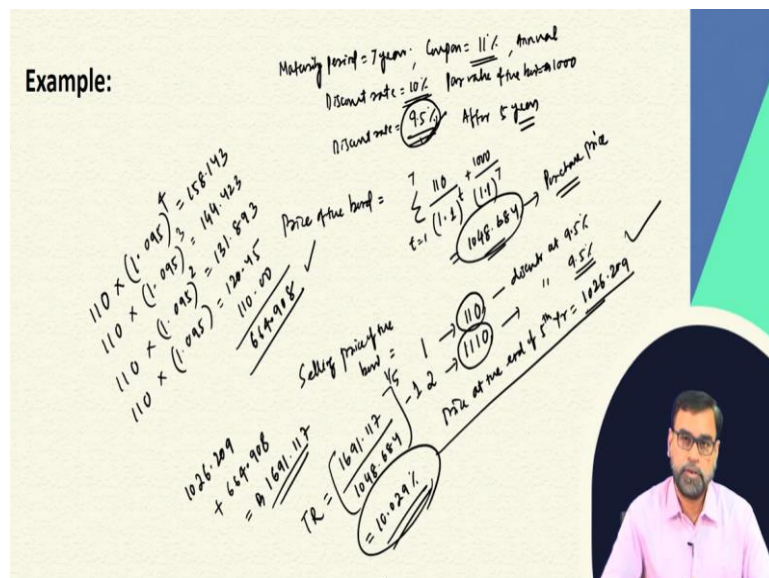 Example:
Maturity period = 7 years, Coupon = 11%, Annual
Discount rate = 10% Par value of the bond = 1000
Discount rate = 9.5% After 5 years
Price of the bond = 7 Σ t=1 110 / (1.1)^t + 1000 / (1.1)^7
= 1048.684 → Purchase price
110 × (1.095)^4 = 158.143
110 × (1.095)^3 = 144.423
110 × (1.095)^2 = 131.893
110 × (1.095) = 120.45
110.00
664.908
Selling price of the bond = 1 → 110 – discount at 9.5%
2 → 1110 – " 9.5%
Price at the end of 5th yr = 1026.209
1026.209
+ 664.908
= 1691.117
TR = (1691.117 / 1048.684)^1/5 - 1
= 10.029%